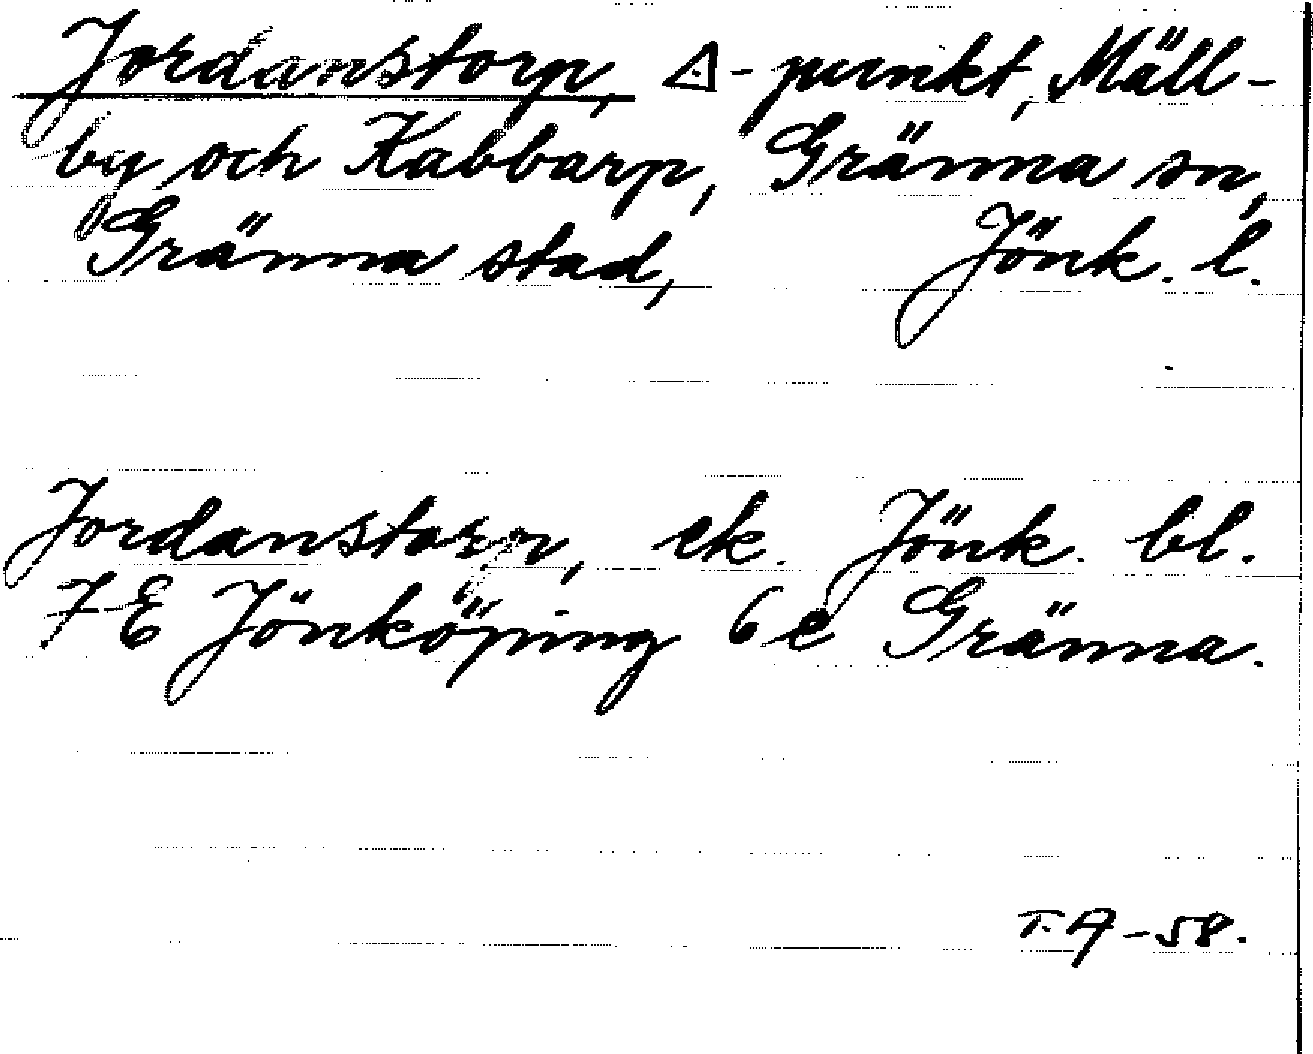 Jordanstorp, △-punkt, Mäll-
by och Kabbarp, Gränna sn,
Gränna stad, Jönk. l.
Jordanstorp, ek. Jönk. bl.
7 E Jönköping 6 e Gränna.
T.A-58.